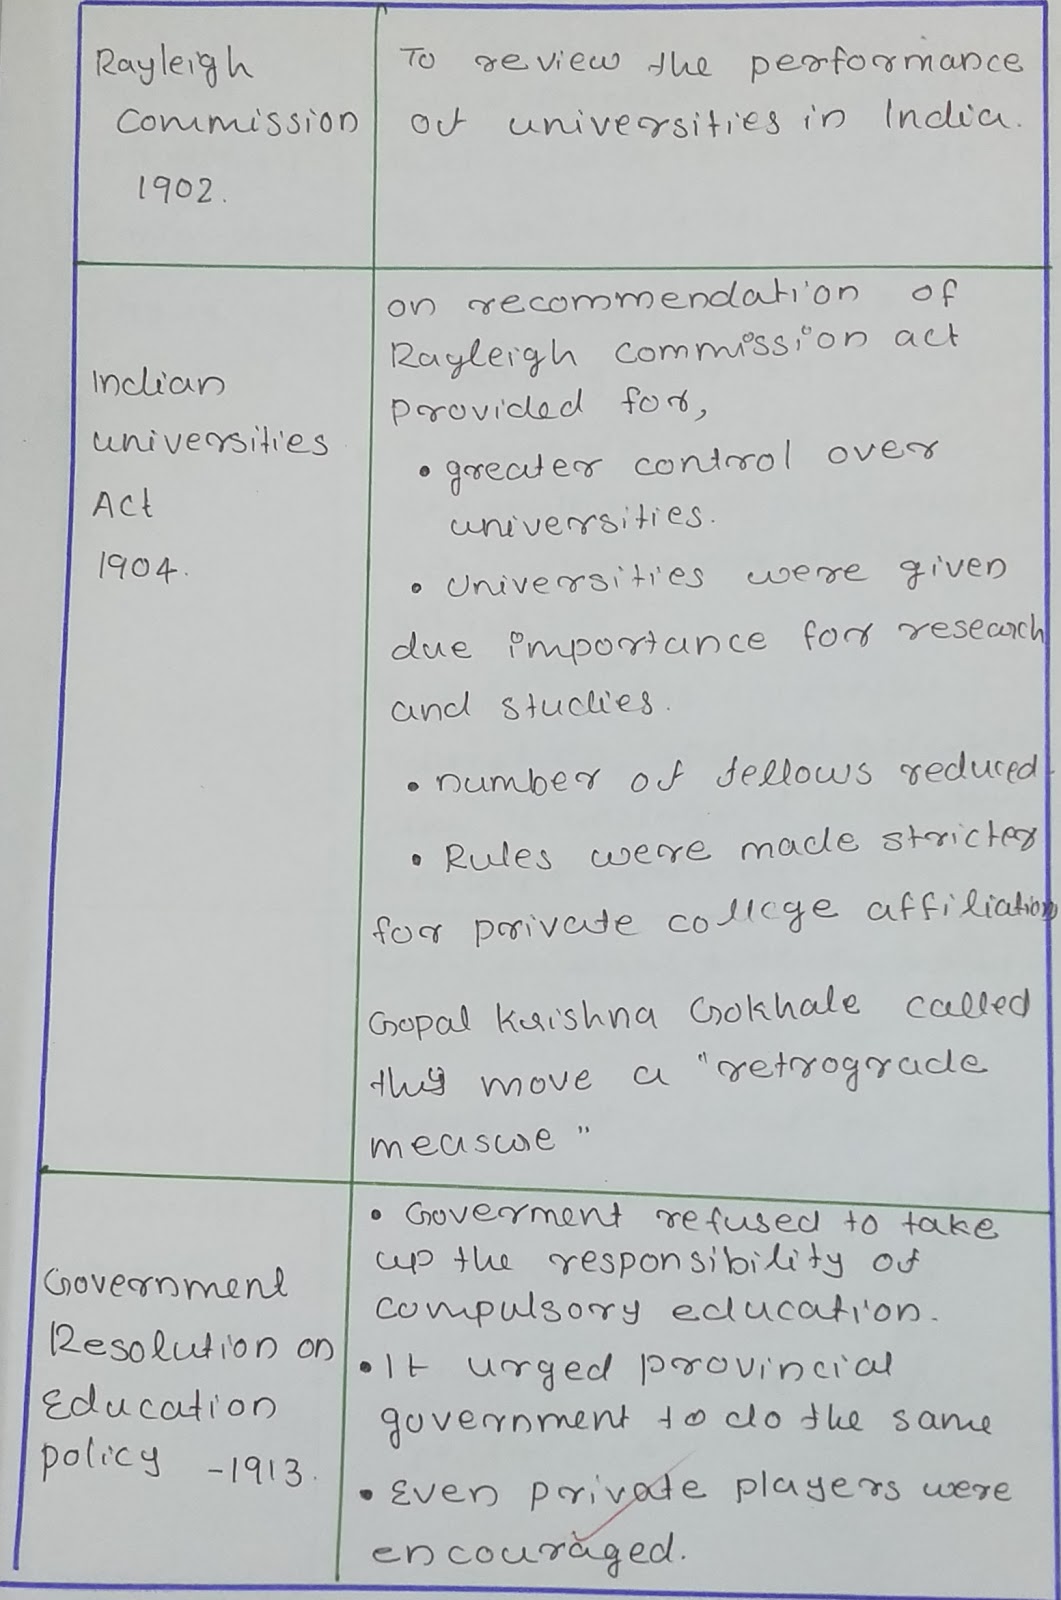 Rayleigh
Commission
1902.
To review the performance
of universities in India.
Indian
universities
Act
1904.
on recommendation of
Rayleigh commission act
provided for,
• greater control over
universities.
• Universities were given
due importance for research
and studies.
• number of fellows reduced.
• Rules were made stricter
for private college affiliation
Gopal Krishna Gokhale called
this move a "retrograde
measure"
Government
Resolution on
Education
policy -1913.
• Goverment refused to take
up the responsibility of
compulsory education.
• It urged provincial
government to do the same
• Even private players were
encouraged.